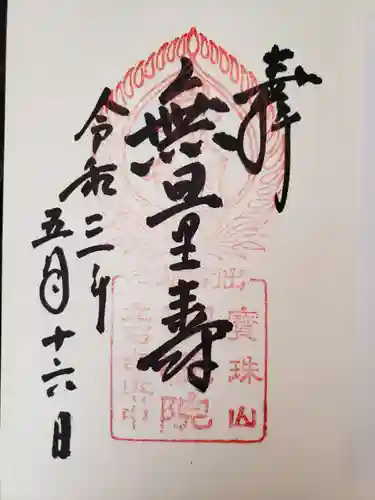 奉
無量寿
令和三年
五月十六日
寶珠山
院